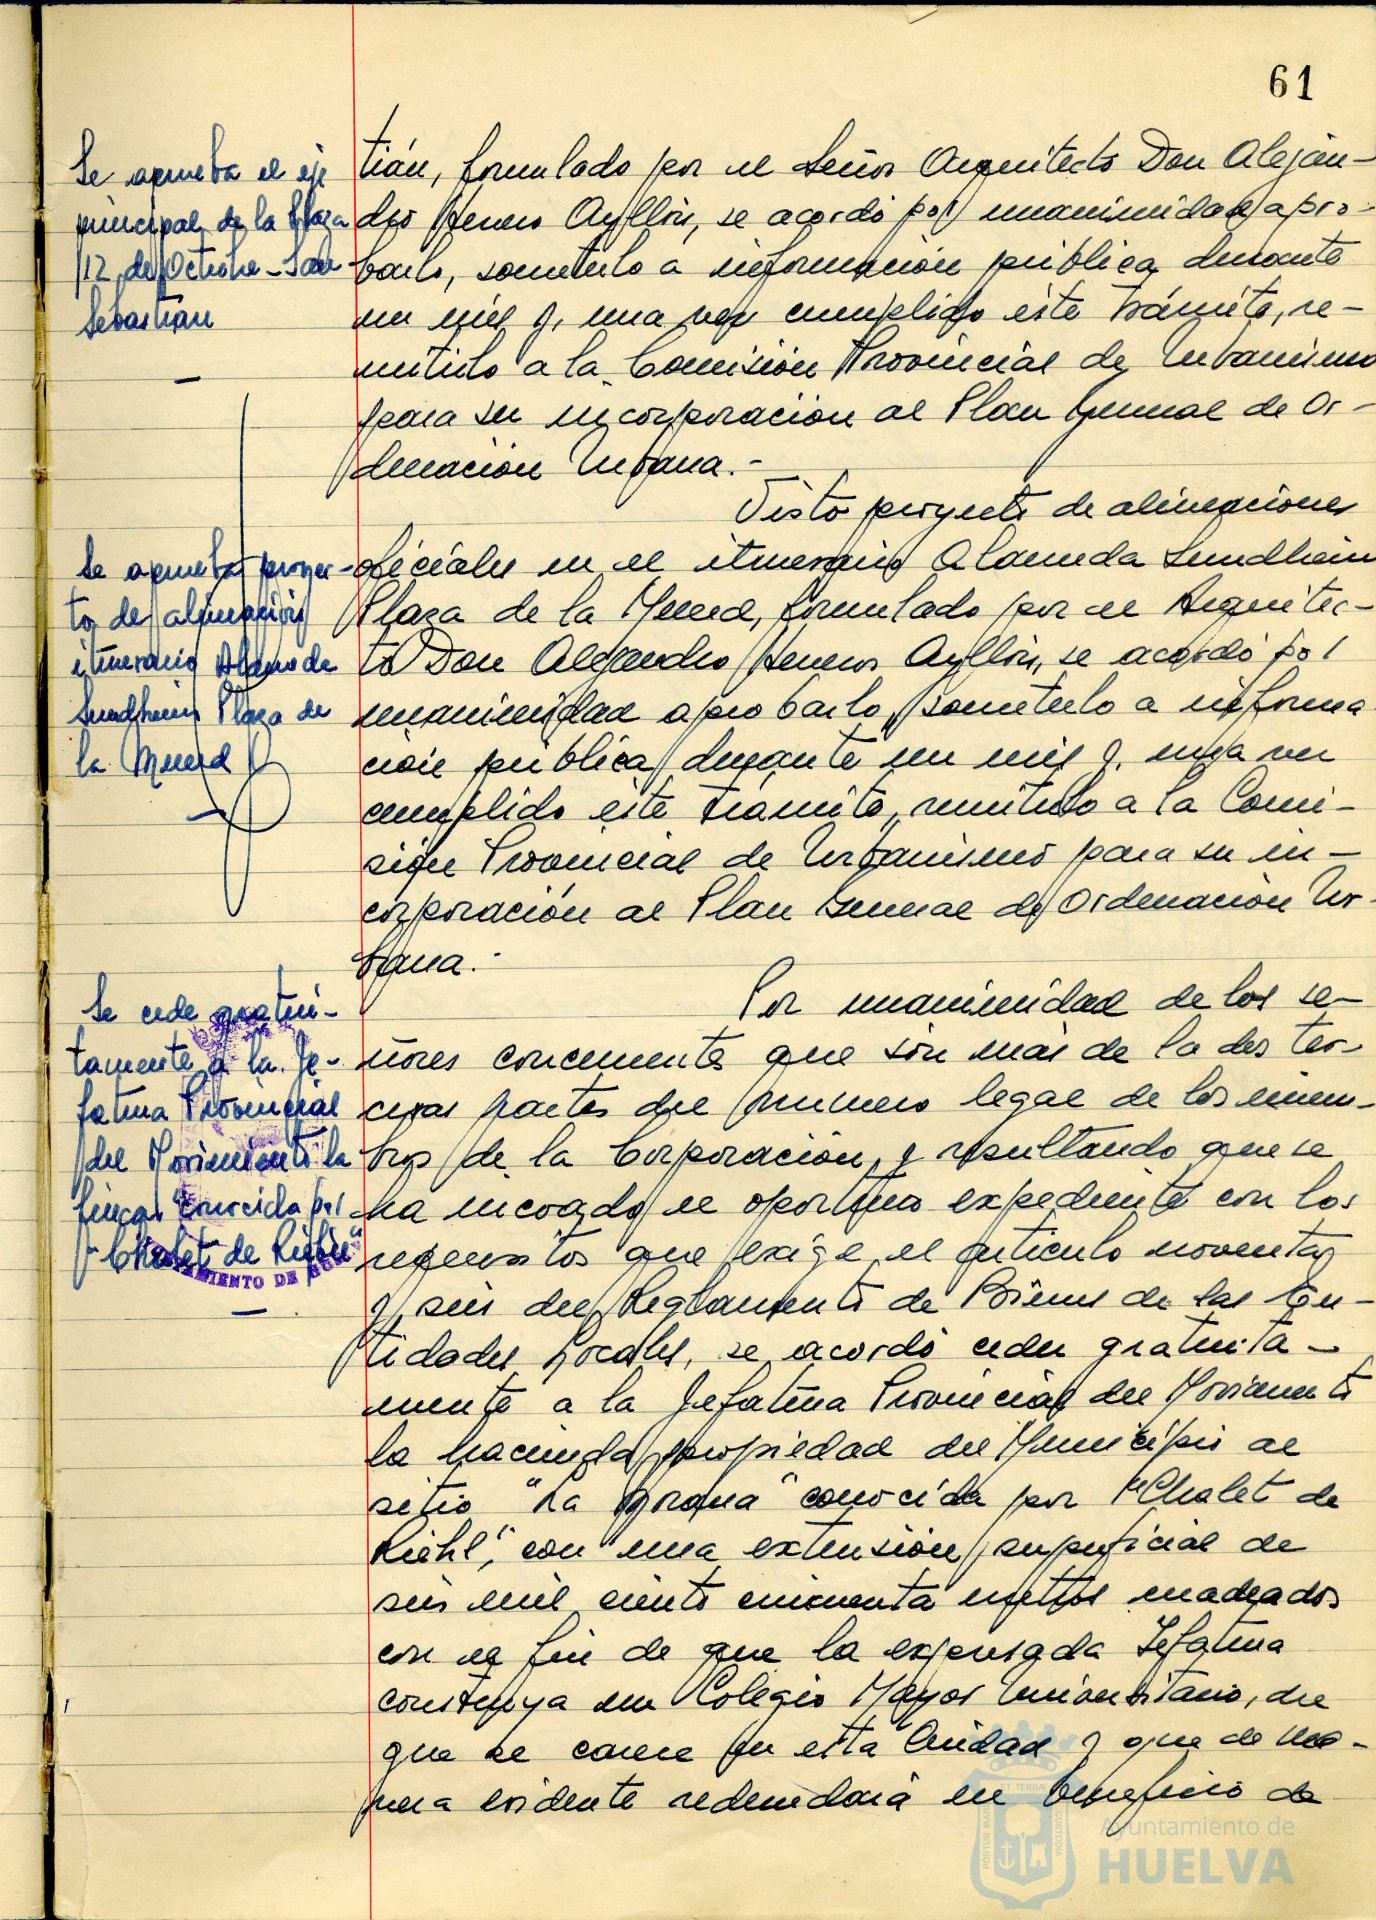 61
Se aprueba el eje
principal de la Plaza
12 de Octubre - San
Sebastián
tián, formulado por el Señor Arquitecto Don Alejan-
dro Herrero Ayllón, se acordó por unanimidad apro-
barlo, someterlo a información pública durante
un mes y, una vez cumplido este trámite, re-
mitirlo a la Comisión Provincial de Urbanismo
para su incorporación al Plan General de Or-
denación Urbana.-
Se aprueba proyec-
to de alineación
itinerario Alameda
Sundheim Plaza de
la Merced
Visto proyecto de alineaciones
oficiales en el itinerario Alameda Sundheim
Plaza de la Merced, formulado por el Arquitec-
to Don Alejandro Herrero Ayllón, se acordó por
unanimidad aprobarlo, someterlo a informa
ción pública durante un mes y, una vez
cumplido este trámite, remitirlo a la Comi-
sión Provincial de Urbanismo para su in-
corporación al Plan General de Ordenación Ur-
bana.-
Se cede gratui-
tamente a la Je-
fatura Provincial
del Movimiento la
finca "conocida por
Chalet de Riehl"
AYUNTAMIENTO DE HUELVA
Por unanimidad de los se-
ñores concurrentes que son más de la dos ter-
ceras partes del número legal de los miem-
bros de la Corporación, y resultando que se
ha incoado el oportuno expediente con los
requisitos que exige el artículo noventa
y seis del Reglamento de Bienes de las En-
tidades Locales, se acordó ceder gratuita-
mente a la Jefatura Provincial del Movimiento
la hacienda propiedad del Municipio al
sitio "La Joraya" conocida por "Chalet de
Riehl", con una extensión superficial de
seis mil ciento cincuenta metros cuadrados
con el fin de que la expresada Jefatura
construya un Colegio Mayor Universitario, del
que se carece en esta Ciudad y que de ma-
nera evidente redundará en beneficio de
PORTUS MARIS ET TERRAE CUSTODIA
Ayuntamiento de
HUELVA